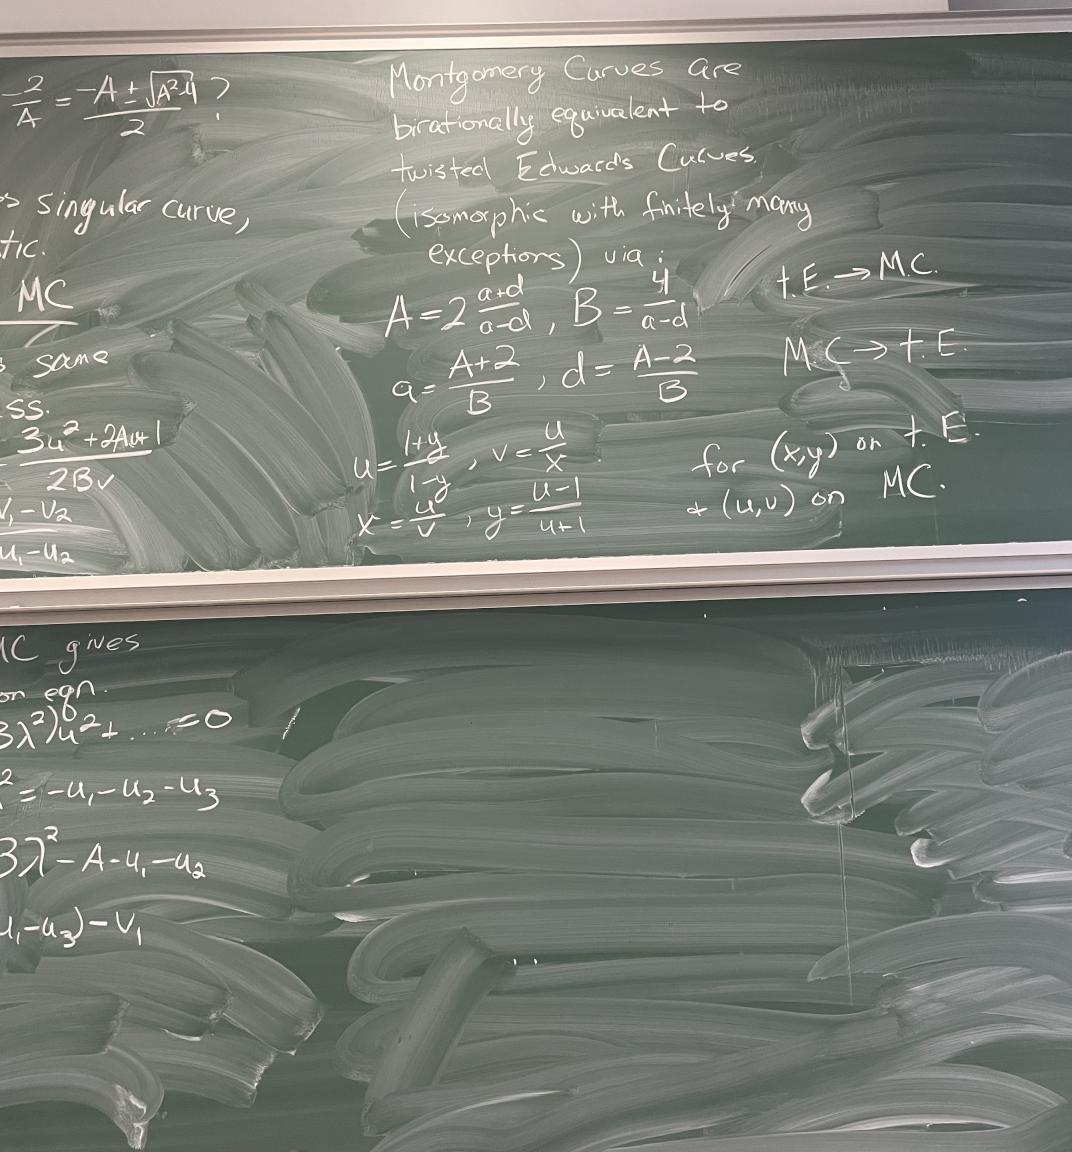 -2/A = (-A ± √(A²-4))/2 ?
singular curve,
tic.
MC
same
ss.
(3u²+2Au+1)/(2Bv)
V₁-V₂
u₁-u₂
Montgomery Curves are
birationally equivalent to
twisted Edwards Curves.
(isomorphic with finitely many
exceptions) via:
A = 2 (a+d)/(a-d), B = 4/(a-d) t.E. → M.C.
a = (A+2)/B, d = (A-2)/B M.C → t.E.
u = (1+y)/(1-y), v = u/x for (x,y) on t.E.
x = u/v, y = (u-1)/(u+1) + (u,v) on MC.
MC gives
on eqn.
Bλ²)u²+ .... = 0
² = -u₁-u₂-u₃
Bλ²-A-u₁-u₂
u₁-u₃)-V₁